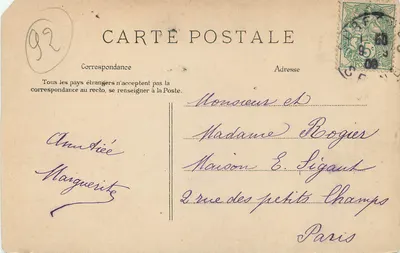 92
CARTE POSTALE
Correspondance
Adresse
Tous les pays étrangers n'acceptent pas la
correspondance au recto, se renseigner à la Poste.
Amitiée
Marguerite
Monsieur et
Madame Rogier
Maison E. Sigaut
2 rue des petits Champs
Paris